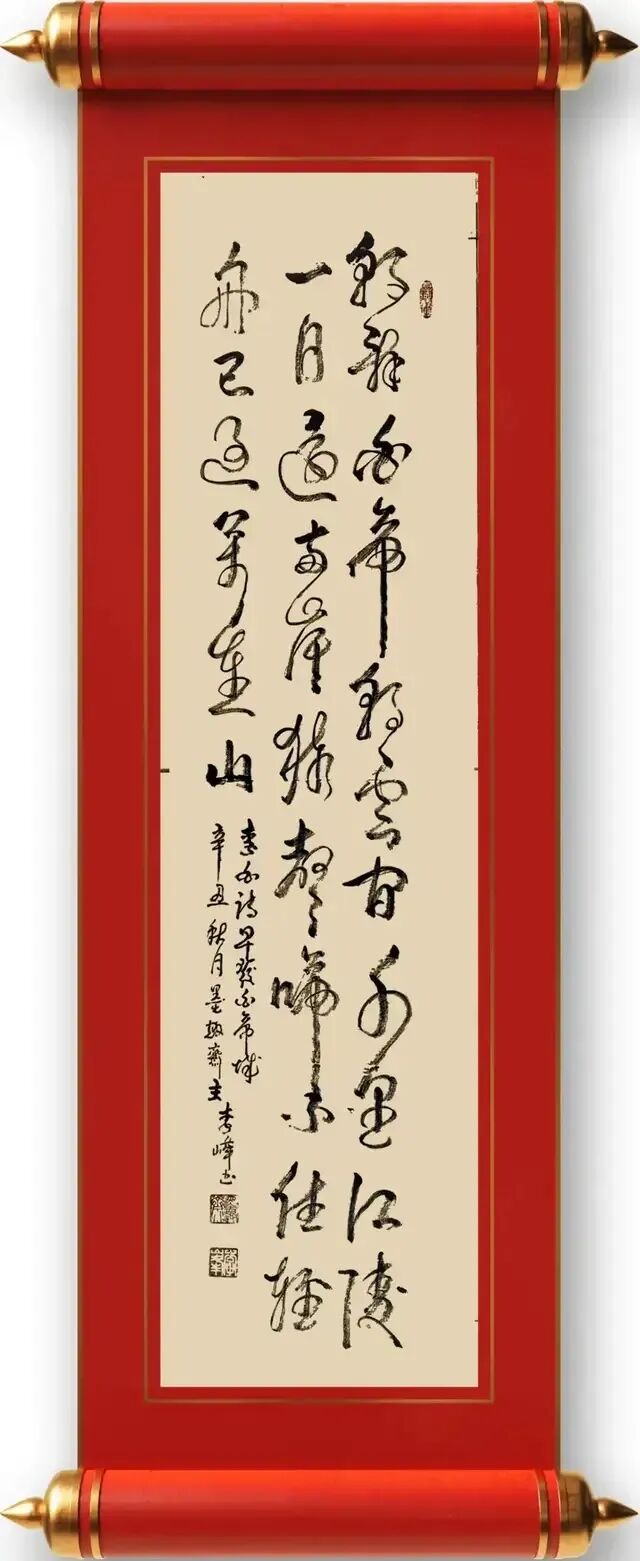 朝辭白帝彩雲間千里江陵
一日還兩岸猿聲啼不住輕
舟已過萬重山
李白詩早發白帝城
辛丑秋月墨趣齋主李峰书